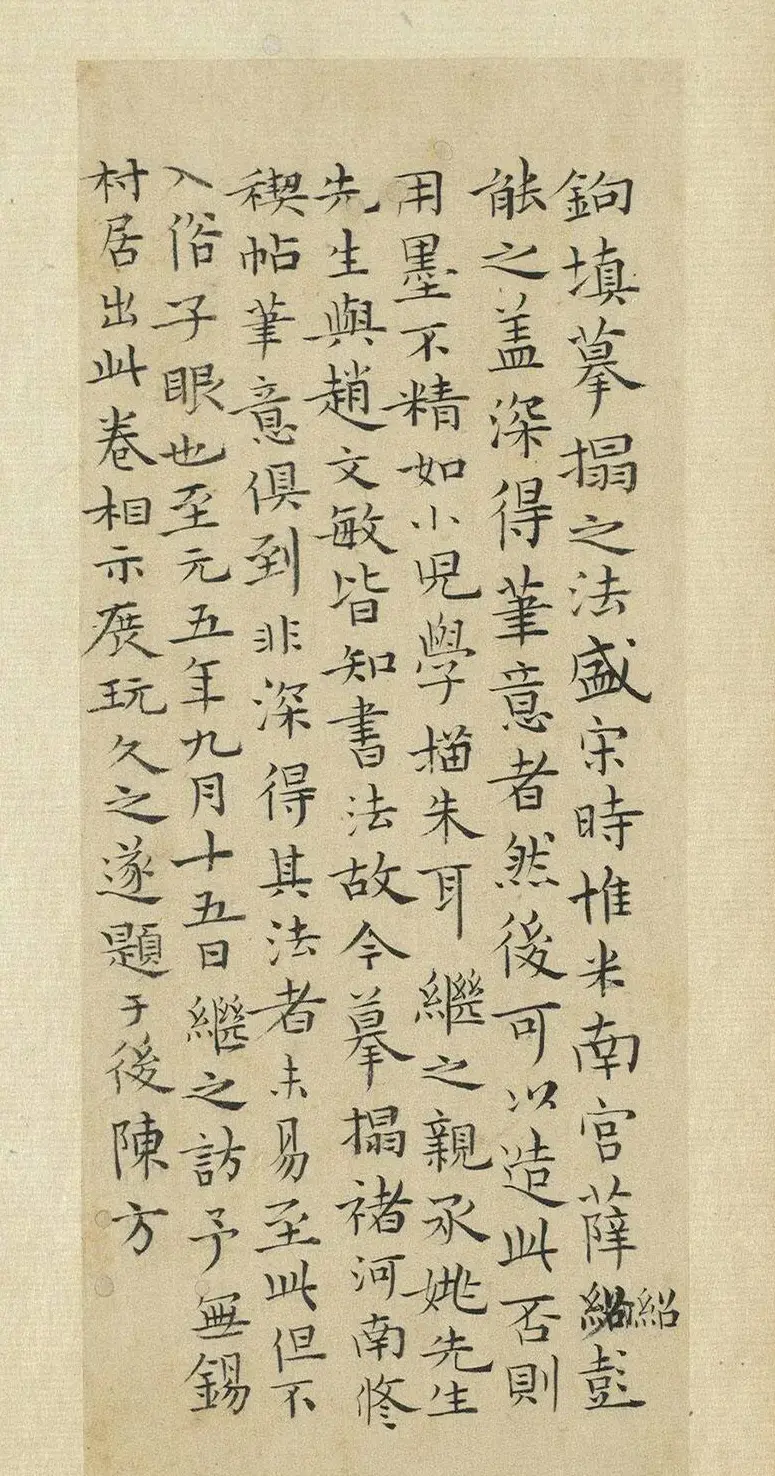 鉤填摹搨之法盛宋時惟米南宫薛紹彭
紹
能之盖深得筆意者然後可以造此否則
用墨不精如小児學描朱耳 繼之親承姚先生
先生與趙文敏皆知書法故今摹搨褚河南脩
禊帖筆意俱到非深得其法者未易至此但不
入俗子眼也至元五年九月十五日繼之訪予無錫
村居出此卷相示展玩久之遂題于後陳方